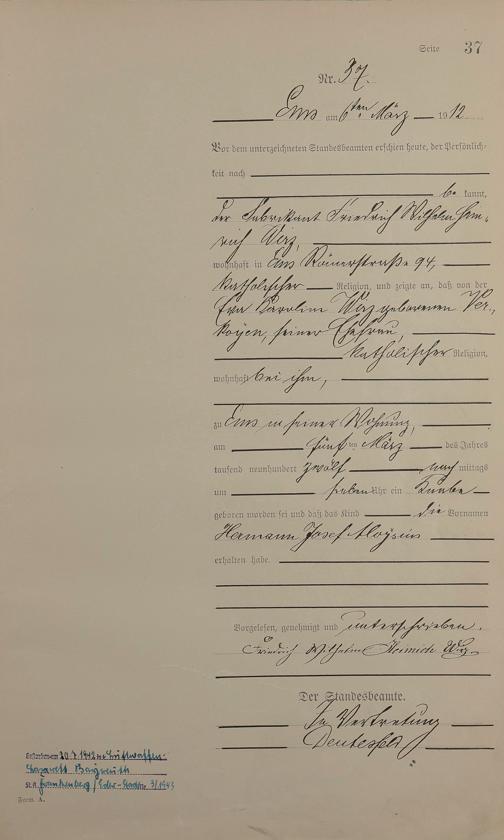 Seite 37
Nr. 37.
Ems am 6ten März 1912
Vor dem unterzeichneten Standesbeamten erschien heute, der Persönlich-
keit nach
be kannt,
der Fabrikant Friedrich Wilhelm Hein-
rich Wirz,
wohnhaft in Ems Römerstraße 94,
katholischer Religion, und zeigte an, daß von der
Eva Karolina Wirz geborenen Ver-
koyen, seiner Ehefrau,
katholischer Religion,
wohnhaft bei ihm,
zu Ems in seiner Wohnung,
am fünften März des Jahres
tausend neunhundert zwölf nach mittags
um sieben Uhr ein Knabe
geboren worden sei und daß das Kind die Vornamen
Hermann Josef Aloysius
erhalten habe.
Vorgelesen, genehmigt und unterschrieben.
Friedrich Wilhelm Heinrich Wirz
Der Standesbeamte.
In Vertretung
20.7.1942 Luftwaffen-
Lazarett
Frankenberg/Eder 3/1943
Form A.